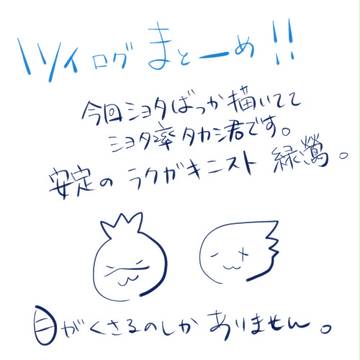 ツイログまとーめ!!
今回ショタばっか描いてて
ショタ率タカシ君です。
安定の ラクガキニスト 緑鶯。
目がくさるのしか ありません。